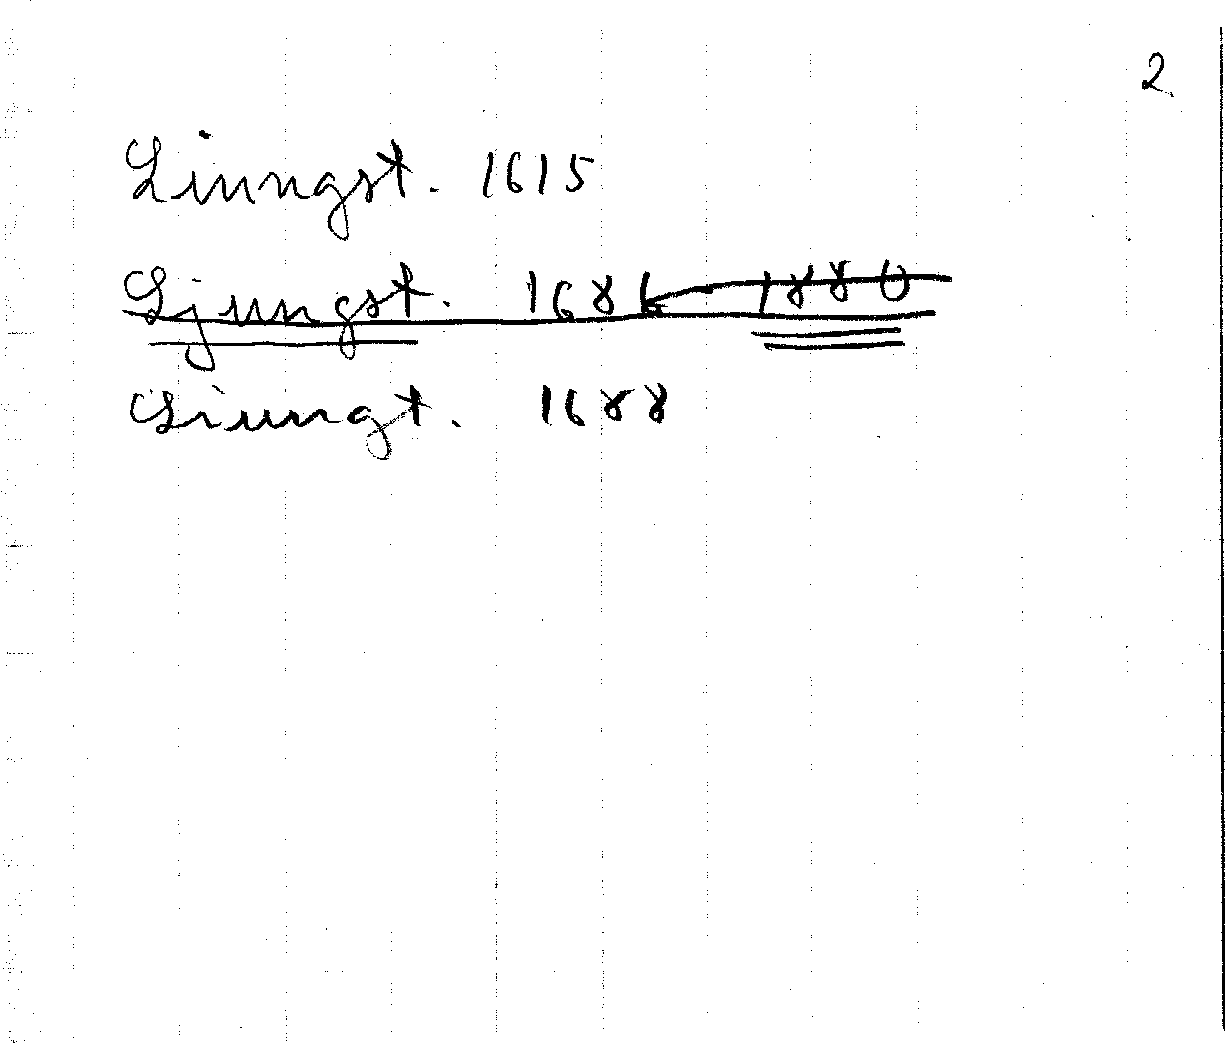 2
Liungst. 1615
Ljungst. 1686 1880
Liungt. 1688